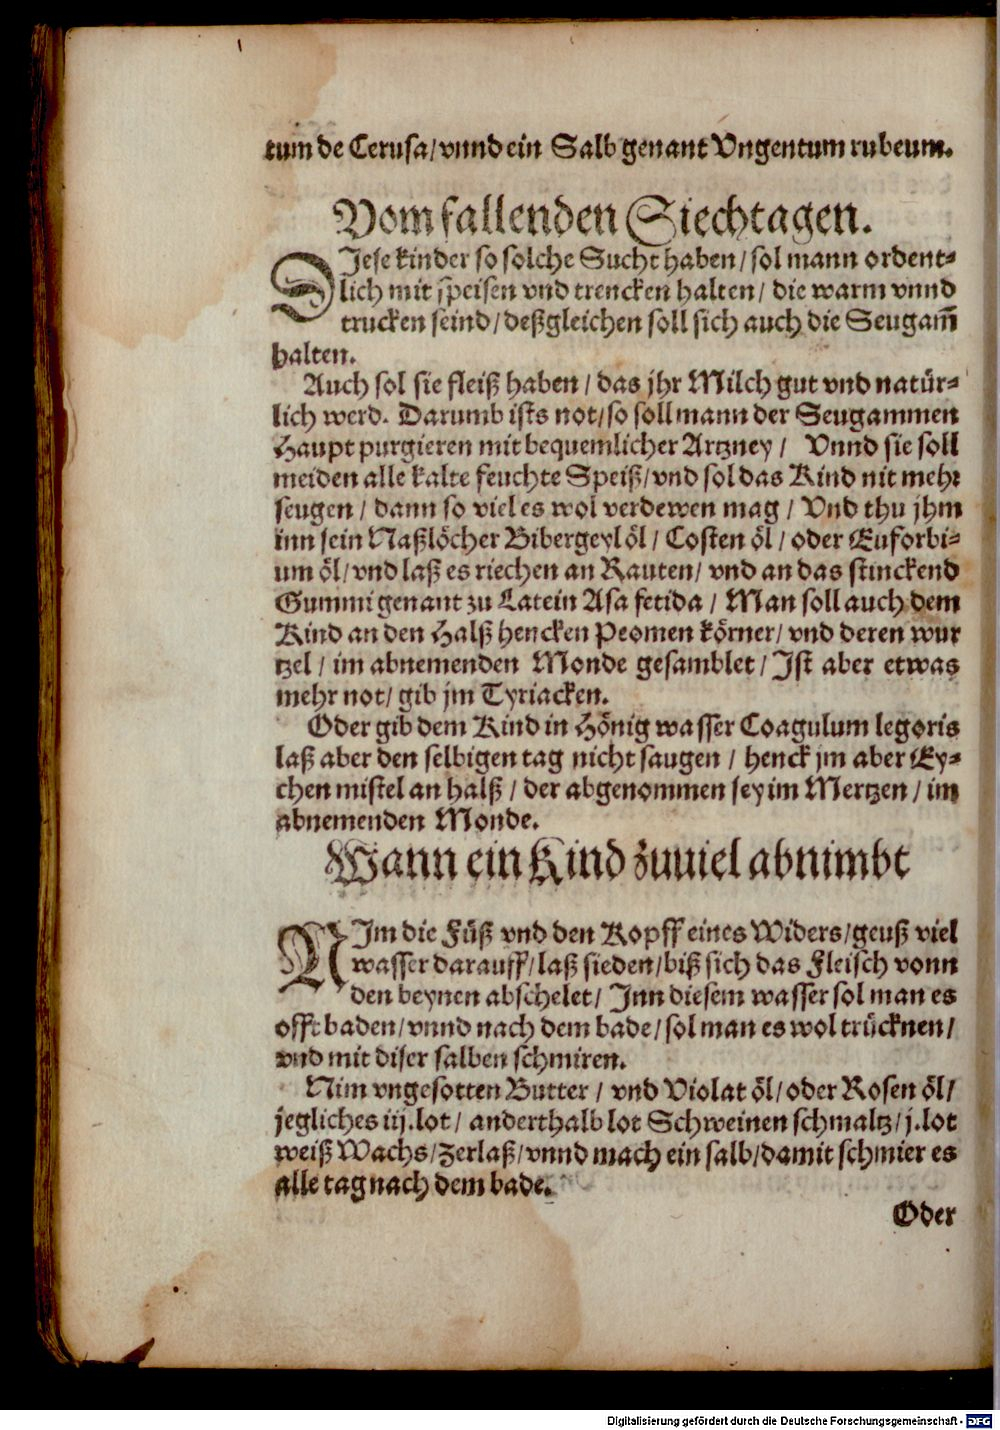 tum de Cerusa/ vnnd ein Salb genant Vngentum rubeum.
Vom fallenden Siechtagen.
DIese kinder so solche Sucht haben/ sol mann ordent-
lich mit speisen vnd trencken halten/ die warm vnnd
trucken seind/ deßgleichen soll sich auch die Seugam̃
halten.
Auch sol sie fleiß haben/ das jhr Milch gut vnd natür-
lich werd. Darumb ists not/ so soll mann der Seugammen
Haupt purgieren mit bequemlicher Artzney/ Vnnd sie soll
meiden alle kalte feuchte Speiß/ vnd sol das Kind nit mehr
seugen/ dann so viel es wol verdewen mag/ Vnd thu jhm
inn sein Naßlöcher Bibergeyl öl/ Costen öl/ oder Euforbi-
um öl/ vnd laß es riechen an Rauten/ vnd an das stinckend
Gummi genant zu Latein Asa fetida/ Man soll auch dem
Kind an den Halß hencken Peomen körner/ vnd deren wur
tzel/ im abnemenden Monde gesamblet/ Ist aber etwas
mehr not/ gib jm Tyriacken.
Oder gib dem Kind in Hönig wasser Coagulum legoris
laß aber den selbigen tag nicht saugen/ henck jm aber Ey-
chen mistel an halß/ der abgenommen sey im Mertzen/ im
abnemenden Monde.
Wann ein Kind zuuiel abnimbt
NIm die Füß vnd den Kopff eines Widers/ geuß viel
wasser darauff/ laß sieden/ biß sich das Fleisch vonn
den beynen abschelet/ Inn diesem wasser sol man es
offt baden/ vnnd nach dem bade/ sol man es wol trücknen/
vnd mit diser salben schmiren.
Nim vngesotten Butter/ vnd Violat öl/ oder Rosen öl/
jegliches iij.lot/ anderthalb lot Schweinen schmaltz/ j.lot
weiß Wachs/ zerlaß/ vnnd mach ein salb/ damit schmier es
alle tag nach dem bade.
Oder
Digitalisierung gefördert durch die Deutsche Forschungsgemeinschaft - DFG